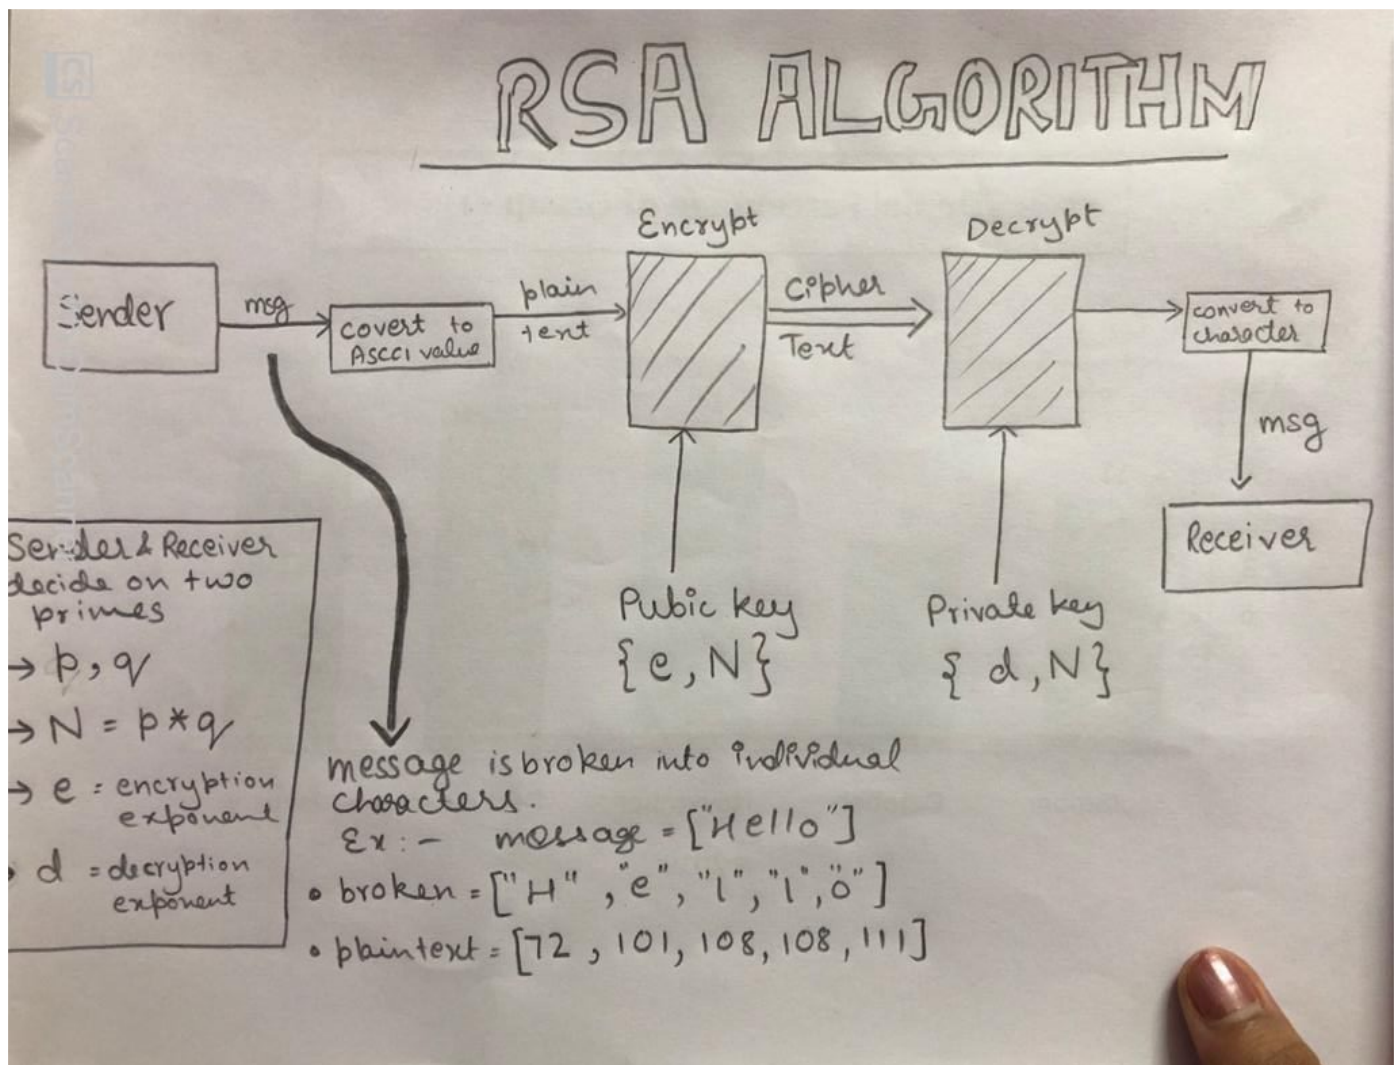 RSA ALGORITHM
Encrypt
Decrypt
Sender
msg
covert to
ASCCI value
plain
text
Cipher
Text
convert to
character
msg
Receiver
Pubic key
{e, N}
Private key
{ d, N}
Sender & Receiver
decide on two
primes
→ p, q
→ N = p * q
→ e = encryption
exponent
• d = decryption
exponent
message is broken into individual
characters.
Ex :- message = ["Hello"]
• broken = ["H" , "e", "l", "l", "o"]
• plaintext = [72 , 101, 108, 108, 111]